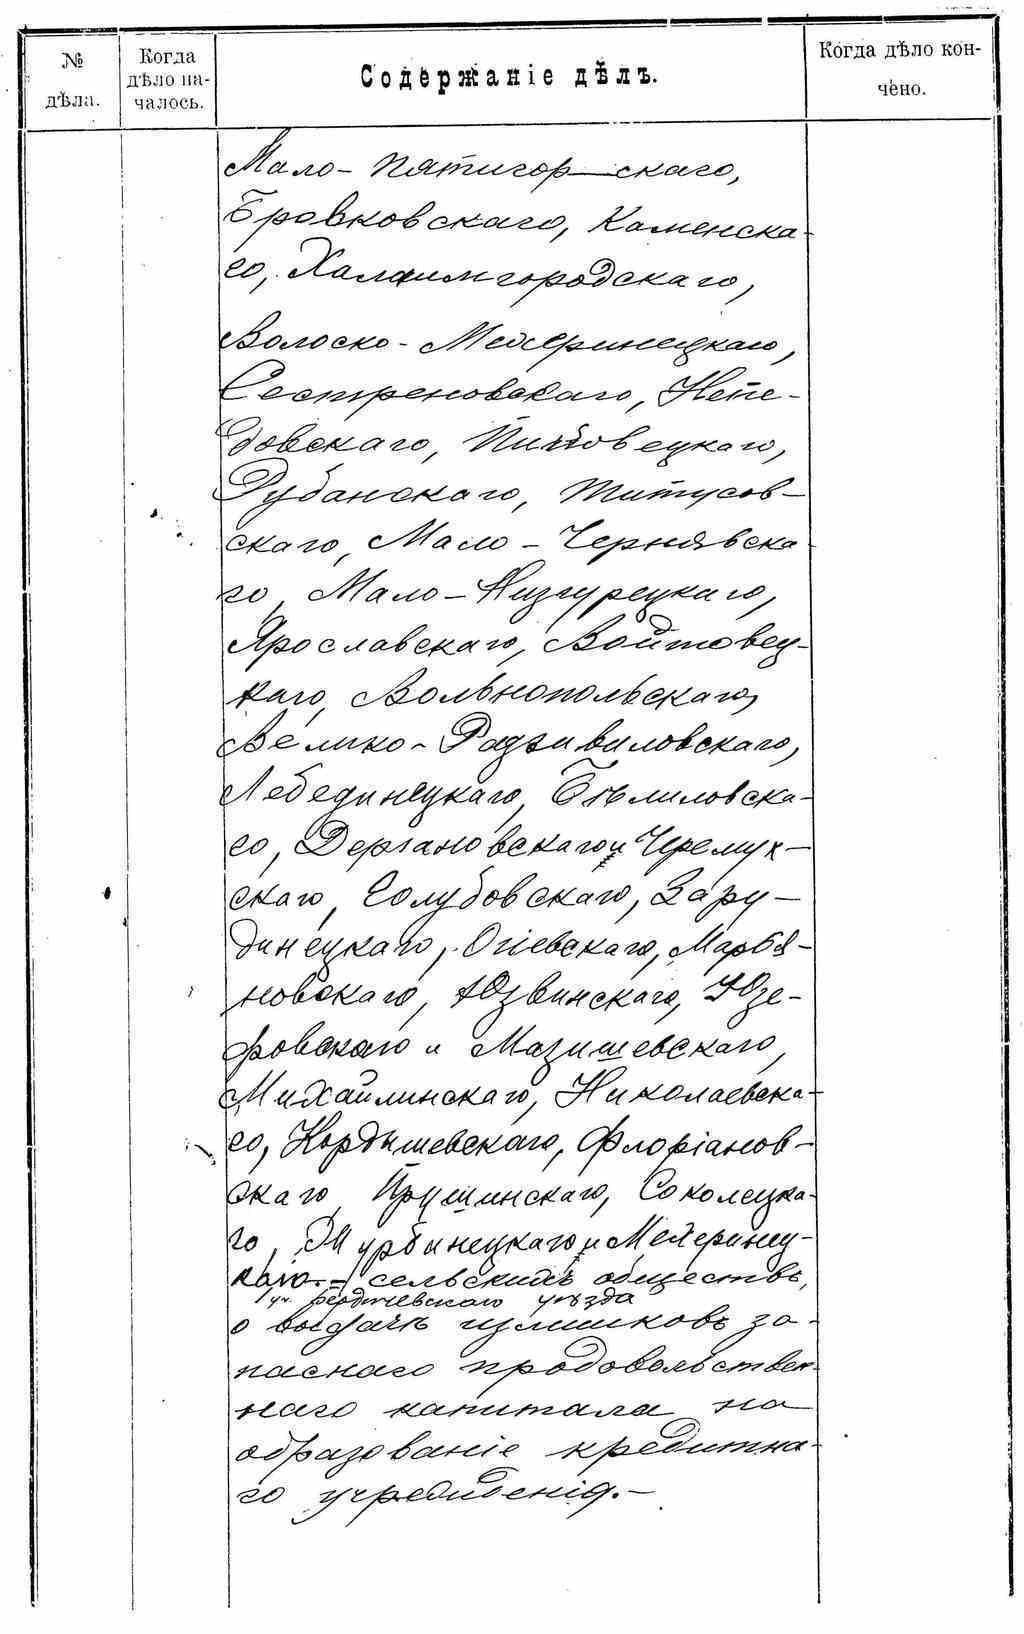 № дѣла.
Когда дѣло началось.
Содержаніе дѣлъ.
Когда дѣло кончено.
Мало-Пятигор—скаго,
Бровковскаго, Каменска-
го, Халаимгородскаго,
Волоско-Мейеринецкаго,
Сестреновскаго, Непе-
довскаго, Пиковецкаго,
Рубанскаго, Титусов-
скаго, Мало-Чернявска
го, Мало-Низгурецкаго,
Ярославскаго, Войтовец-
каго, Вольнопольскаго,
Велико-Радзивиловскаго,
Лебединецкаго, Бѣлиловска-
го, Дергановскаго и Черемух-
скаго, Голубовскаго, Зару-
динецкаго, Огіевскаго, Марья-
новскаго, Юзвинскаго, Юзе-
фовскаго и Мазишевскаго,
Михайлинскаго, Николаевска-
го, Кордишевскаго, Флоріанов-
скаго, Прушинскаго, Соколецка-
го, Журбинецкаго и Мейеринец-
каго.- сельскихъ обществъ,
Бердичевскаго уѣзда
о выдачѣ излишковъ за-
паснаго продовольствен-
наго капитала на
образованіе кредитна-
го учрежденія.-